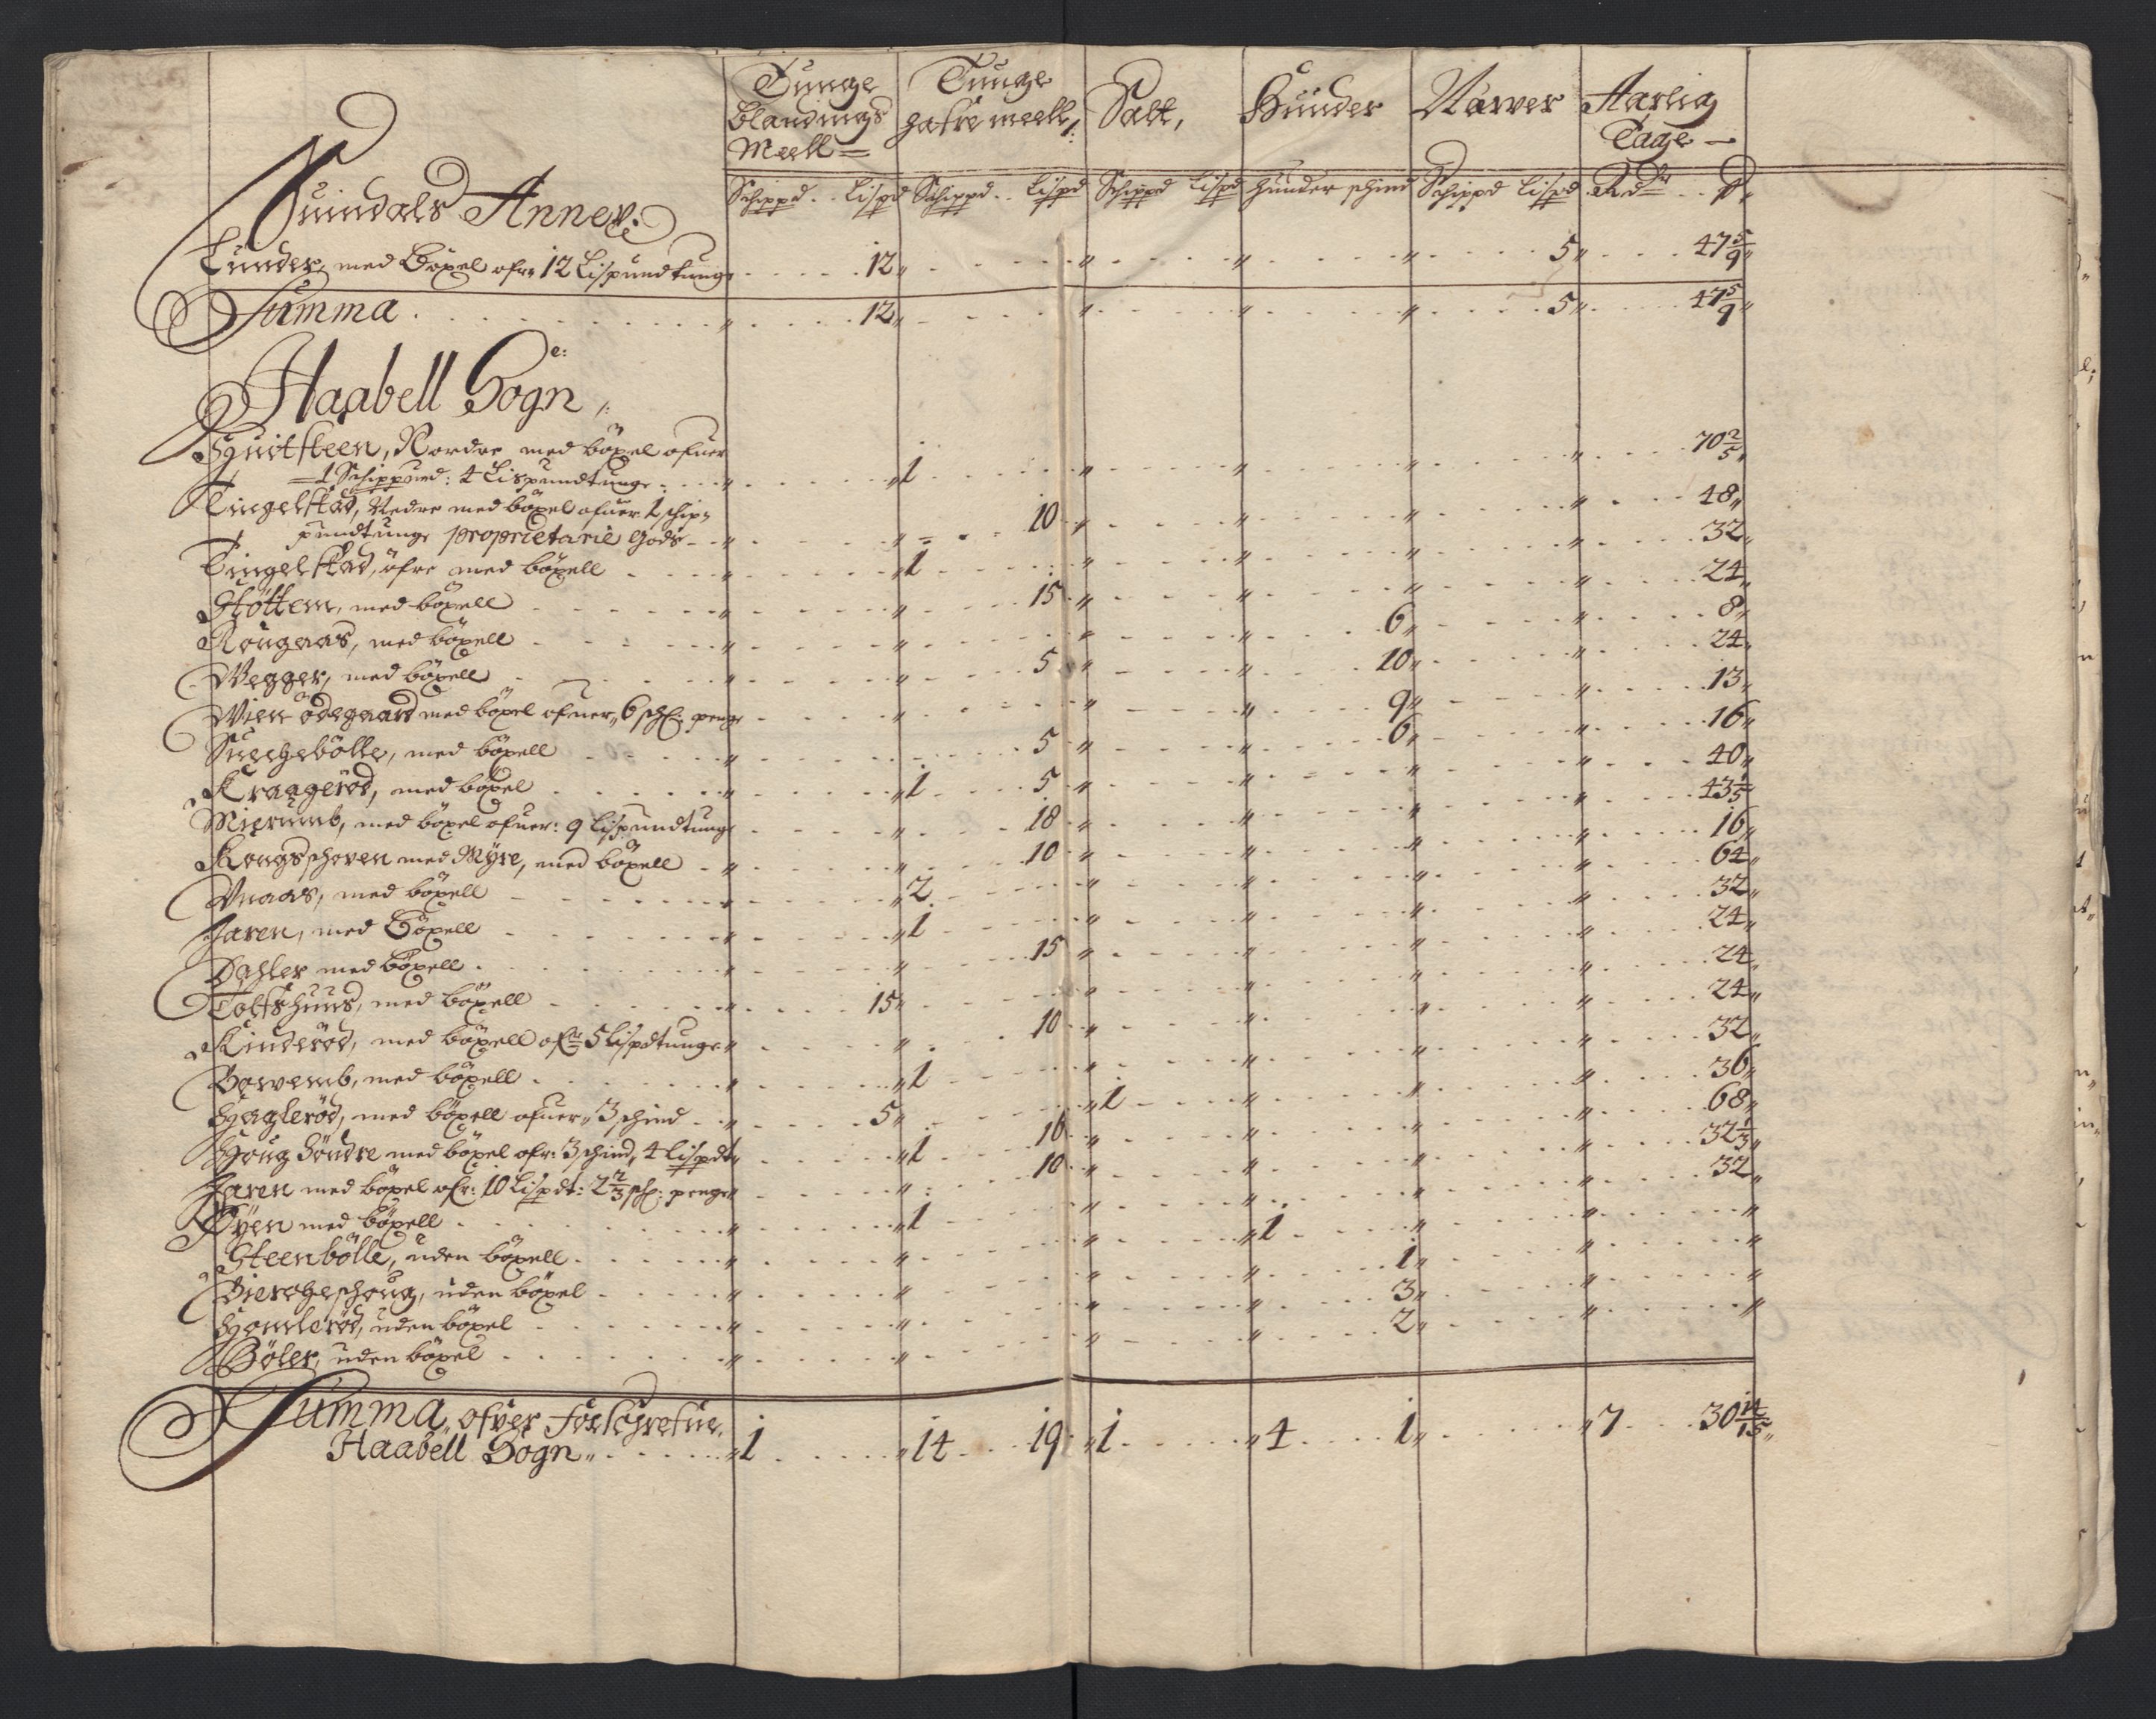 Tunge Blandings Meell = | Tunge hafre meell /: | Salt, | Hunder | Næwer | Aarlig Tage –
Schippd .. Lispd | Schippd .. Lispd | Schippd Lispd | hunder schind | Schippd Lispd | Rdr .. ß
Suindals Annex:
Lunder, med Böxel ofr: 12 Lispundtung 12 " " " 5 " 47 5/9 "
Summa 12 " " " 5 " 47 5/9 "
Haabell Sogn e:
Huitsteen, Nordre med böxel ofuer
= 1 Schippund: 4 Lispundtunge " " 1 " " " " 70 2/5 "
Tingelstad, Nedre med böxel ofuer 1 schip=
pundtunge proprietarie Gods " " 10 " " " " 48 "
Tingelstad, öfre med böxell " " 1 " " " " 32 "
Støttem, med böxell " " 15 " " " " 24 "
Rougaas, med böxell " " " " 6 " " 8 "
Wegger, med böxell " " 5 " " 10 " " 24 "
Wien ödegaard med böxel ofuer, 6 sch: penge " " " 9 " " 13 "
Suechebölle, med böxell " 5 " " 6 " " 16 "
Kraagerød, med böxel " " 1 5 " " " " 40 "
Mierumb, med böxel ofuer: 9 Lispundtung " 18 " " " " 43 1/5 "
Kougsschoven med Myre, med böxell " " 10 " " " " 16 "
Vnaas, med böxell " " 2 " " " " 64 "
Jaren, med Böxell " " 1 " " " " 32 "
Dahler med böxell " " 15 " " " " 24 "
Toffshuus, med böxell " 15 " " " " " 24 "
Kinderød, med böxell ofr 5 Lispdtunge " " 10 " " " " 24 "
Bowemb, med böxell " " 1 " " " " 32 "
Haglerød, med böxell ofuer, 3 schind " 5 " " 1 " " " 36 "
Houg Söndre med böxel ofr: 3 schind, 4 Lispdt " " 1 16 " " " " 68 "
Jaren med böxel ofr: 10 Lispdt: 2 2/3 sch: penge " " 10 " " " " 32 1/3 "
Øyen med böxell " " 1 " " " " 32 "
Steenbölle, uden böxell " " " " 1 " " "
Biercheschoug, uden böxel " " " " 1 " " "
Homlerød, uden böxel " " " " 3 " " "
Böler, uden böxel " " " " 2 " " "
Summa, ofver forschrefne.
Haabell Sogn " " 1 " 14 19 " 1 " 4 1 " " 7 30 14/15 "